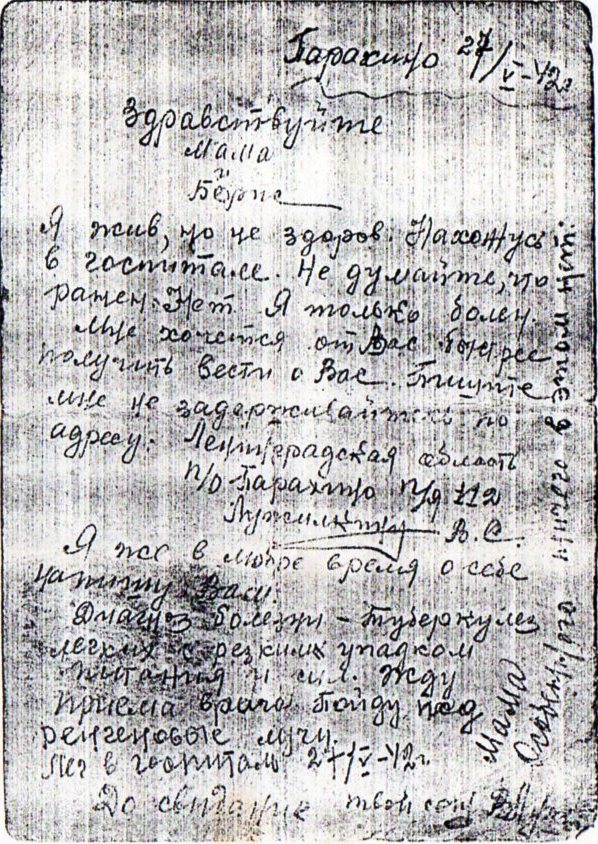 Парахино 27/V-42г
Здравствуйте
Мама
и
Борис
Я жив, но не здоров. Нахожусь
в госпитале. Не думайте, что
ранен. Нет Я только болен.
Мне хочется от Вас быстрее
получить вести о Вас. Пишите
мне не задерживайтесь по
адресу: Ленинградская область
п/о Парахино п/я 112
В.С.
Я же в любое время о себе
напишу Вам.
Диагноз болезни – туберкулез
легких с резким упадком
питания и сил. Жду
приема врача Пойду под
ренгеновые лучи.
Лег в госпиталь 27/V-42г.
До свидание твой сын
Мама
Особенного ничего в этом нет.